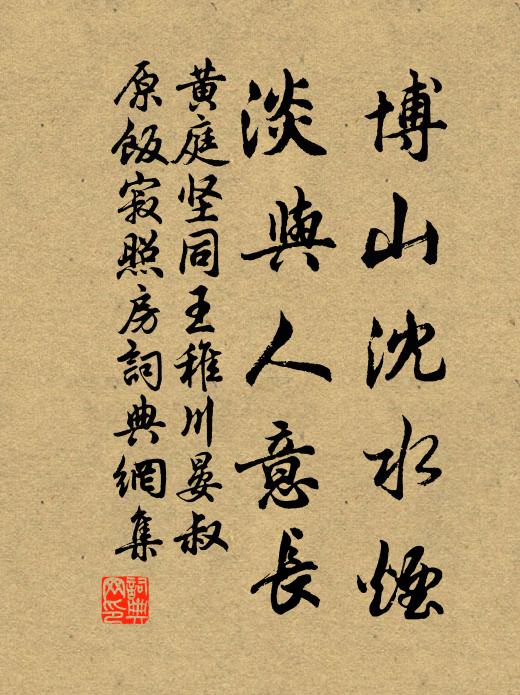 博山沈水煙
淡與人意長
黃庭坚同王稚川晏叔
原飯寂照房詞典網集
詞典网印